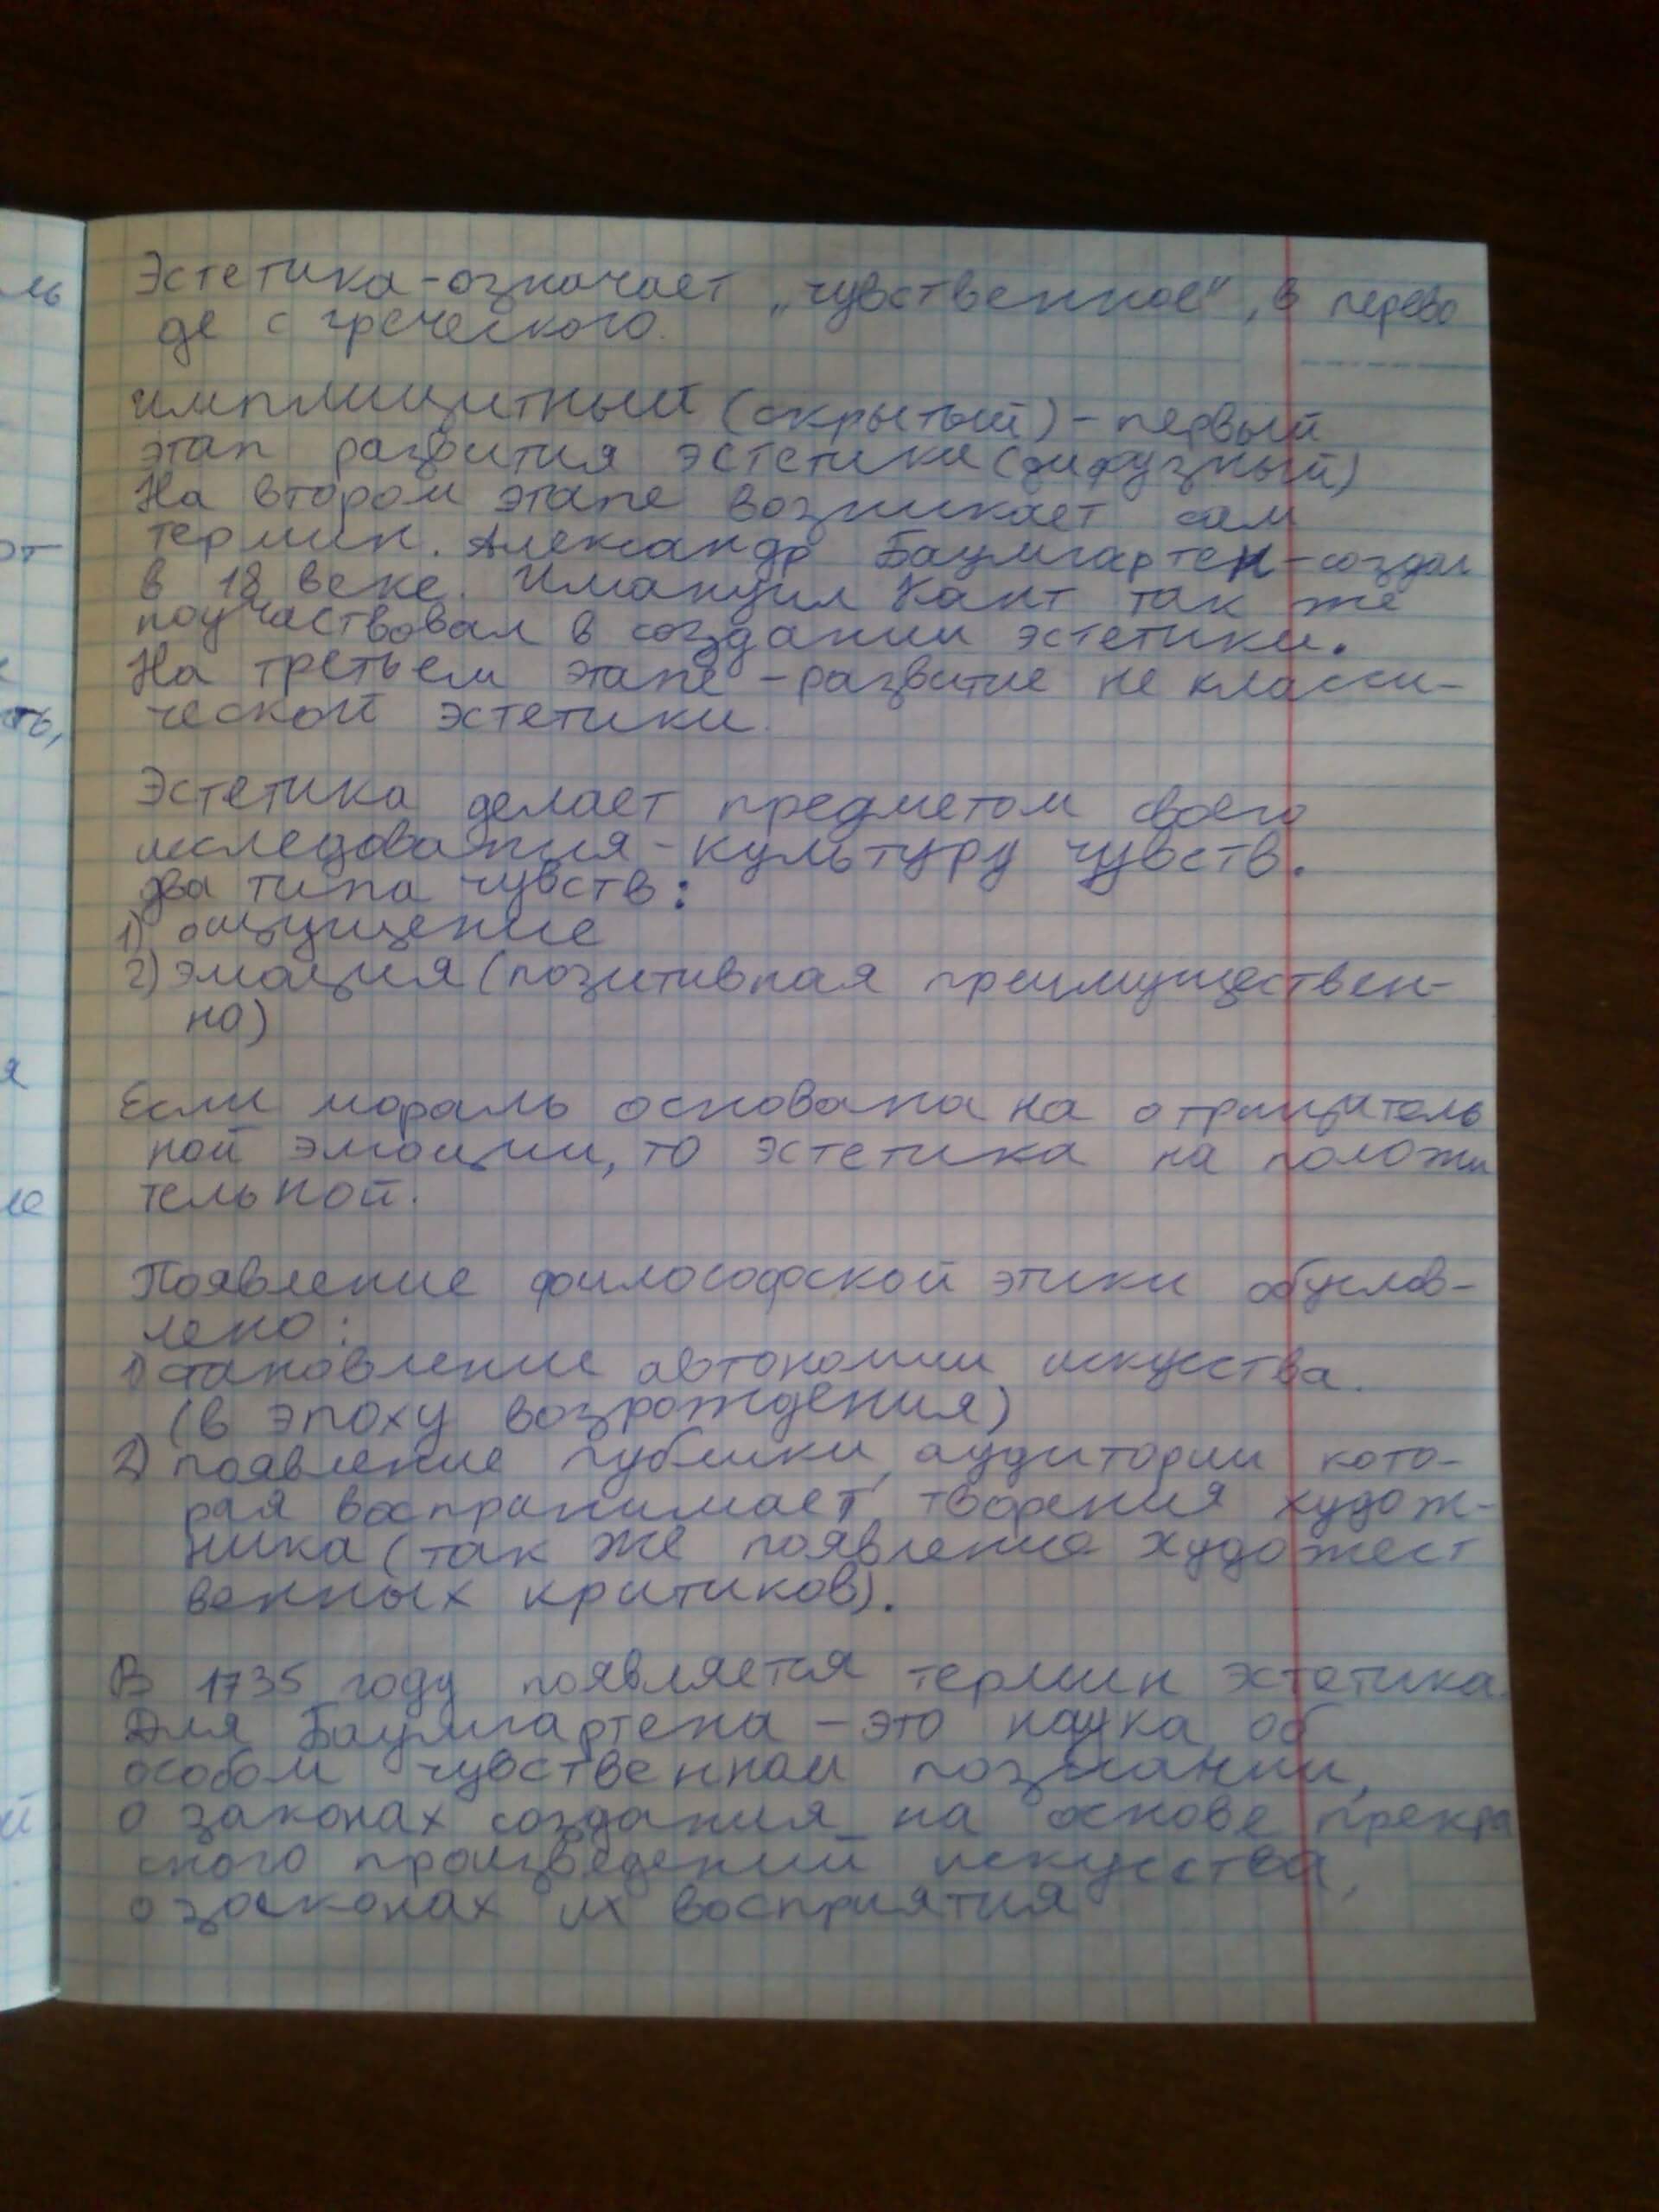 Эстетика-означает „чувственное", в перево
де с греческого.
имплицитный (скрытый) - первый
этап развития эстетики (дифузный)
На втором этапе возникает сам
термин. Александр Баумгартен - создал
в 18 веке. Имануил Кант так же
поучаствовал в создании эстетики.
На третьем этапе - развитие не класси-
ческой эстетики.
Эстетика делает предметом своего
исследования - культуру чувств.
два типа чувств:
1) ощущение
2) эмоция (позитивная преимуществен-
но)
Если мораль основана на отрицитель
ной эмоции, то эстетика на положи
тельной.
Появление философской этики обуслов-
лено:
1) становление автономии искусства.
(в эпоху возрождения)
2) появление публики, аудитории кото-
рая воспринимает творения худож-
ника (так же появление художест
венных критиков).
В 1735 году появляется термин эстетика.
Для Баумгартена - это наука об
особом чувственном познании,
о законах создания на основе прекра
сного произведений искусства,
о законах их восприятия